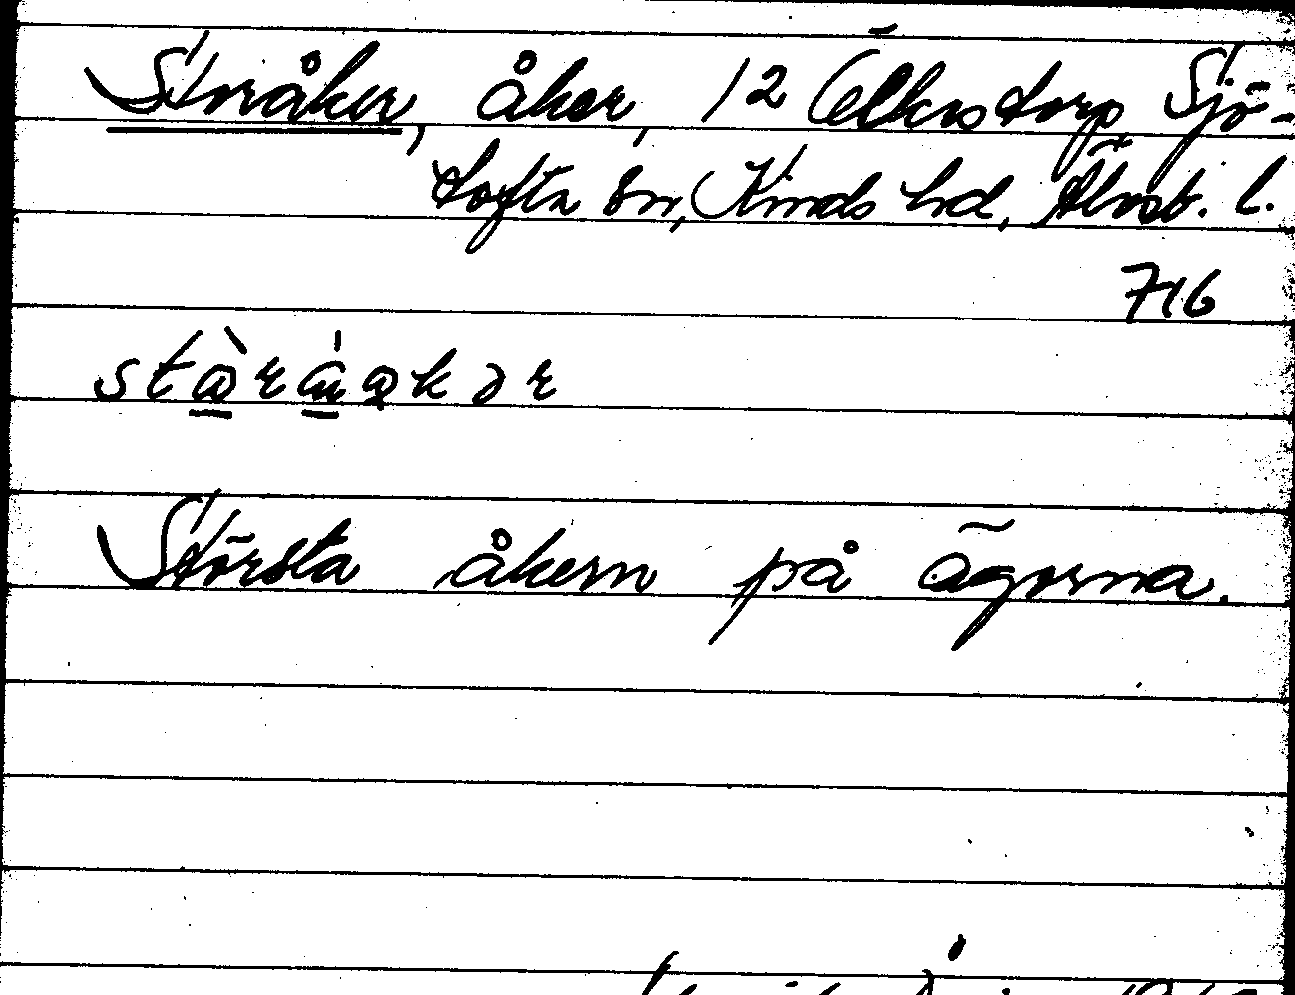 Storåker, åker, 12 Ölkestorp Sjö-
tofta sn, Kinds hd, Älvsb. l.
716
Största åkern på ägorna.